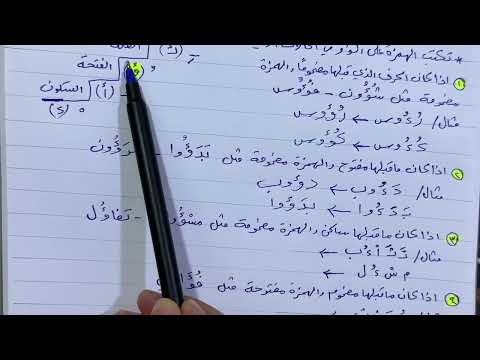 * تكتب الهمزة على الواو في الحالات
(أ)
(ؤ) الفتحة
(أ) السكون
(ء)
① اذا كان الحرف الذي قبلها مضموم والهمزة
مضمومة مثل شُؤُون - فُؤُوس
مثال/ رُءُوس ← رُؤُوس
كُؤُوس
② اذا كان ماقبلها مفتوح والهمزة مضمومة مثل بَدَؤُوا - يَبدَؤُون
مثال/ دَءُوب ← دَؤُوب
بَدَءُوا ← بَدَؤُوا
③ اذا كان ماقبلها ساكن والهمزة مضمومة مثل مسْؤُ - تفاؤُل
مثال/ تَثَاءُب ←
مسْءُل ←
④ اذا كان ماقبلها مضموم والهمزة مفتوحة مثل فُؤَا